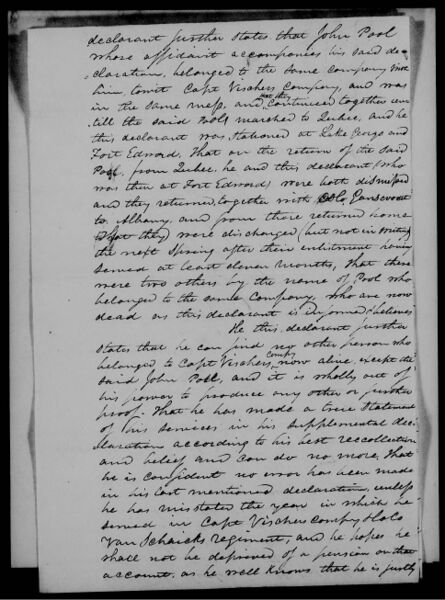 declarant further States that John Pool
whose affidavit accompanies his said de-
-claration, belonged to the same company with
him, towit Capt Vischers Company, and was
in the same mess, and that they continued together un-
till the said Pool marched to Quebec, and he
this declarant was stationed at Lake George and
Fort Edward, That on the return of the said
Pool, from Quebec, he and this declarant (who
was then at Fort Edward) were both dismissed
and they returned together with Colo. Gansevoort
to Albany, and from there returned home
that they were discharged (but not in writing
the next Spring after their enlistment having
served at least eleven months, That there
were two others by the name of Pool who
belonged to the same Company, who are now
dead as this declarant is informed & believes
He this declarant further
States that he can find no other person who
belonged to Capt Vischers Compy now alive, except the
said John Pool, and it is wholly out of
his power to produce any other or further
proof. That he has made a true Statement
of his services in his supplemental dec-
-laration according to his best reccollection
and belief and can do no more, That
he is confident no error has been made
in his last mentioned declaration, unless
he has misstated the year in which he
served in Capt Vischers Compy Colo
Van Schaicks regiment, and he hopes he
shall not be deprived of a pension on that
account, as he well knows that he is justly